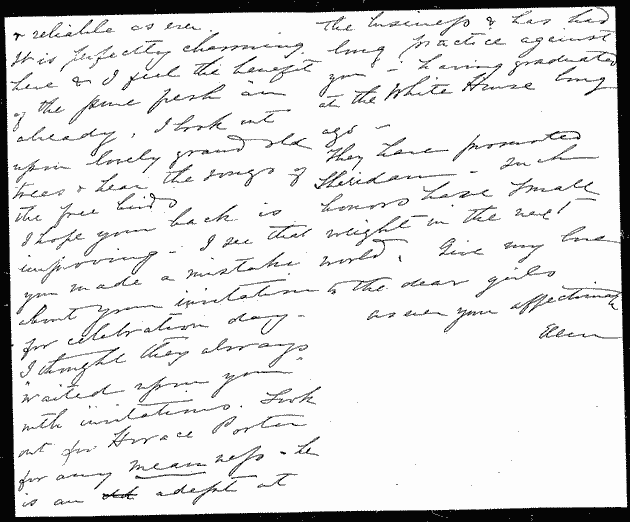 & reliable as ever.
It is perfectly charming
here & I feel the benefit
of the pure fresh air
already. I look out
upon lovely grand old
trees & hear the songs of
the free birds
I hope your back is
improving - I see that
you made a mistake
about your invitation
for celebration day -
I thought they always
"waited upon you"
with invitations. Look
out for Horace Porter
for any meanness - he
is an adept at
the business & has had
long practice against
you - having graduated
at the White House long
ago -
They have promoted
Sheridan - Such
honors have small
weight in the next
world. Give my love
to the dear girls
as ever your affectionate
Ellen